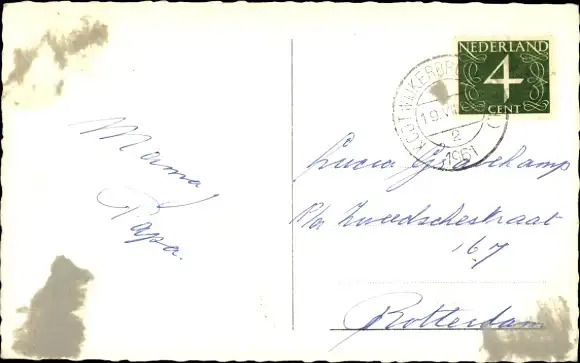 Mama
Papa.
NEDERLAND
4
CENT
19.VII
2
1961
Lucia
P/a Zweedschestraat
167
Rotterdam